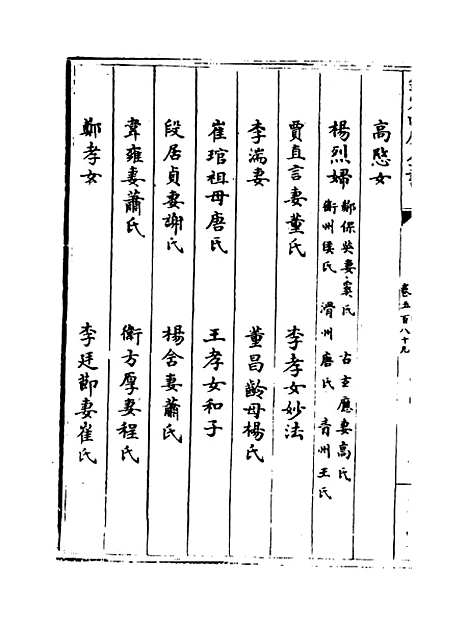 卷五百八十九
高愍女
楊烈婦 鄒保英妻奚氏 古玄應妻高氏
衛州侯氏 滑州唐氏 青州王氏
賈直言妻董氏 李孝女妙法
李湍妻 董昌齡母楊氏
崔琯祖母唐氏 王孝女和子
段居貞妻謝氏 楊含妻蕭氏
韋雍妻蕭氏 衛方厚妻程氏
鄭孝女 李廷節妻崔氏